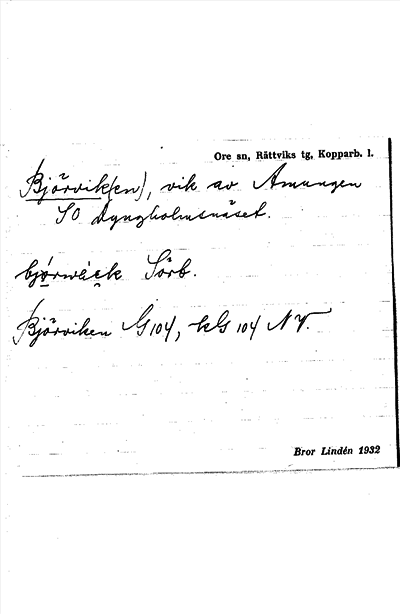 Ore sn, Rättviks tg, Kopparb. l.
Björvik(en), vik av Amungen
SO Dyngholmsnäset.
bjo̱rwi̱c̱k Sörb.
Björviken G 104, kG 104 NV.
Bror Lindén 1932